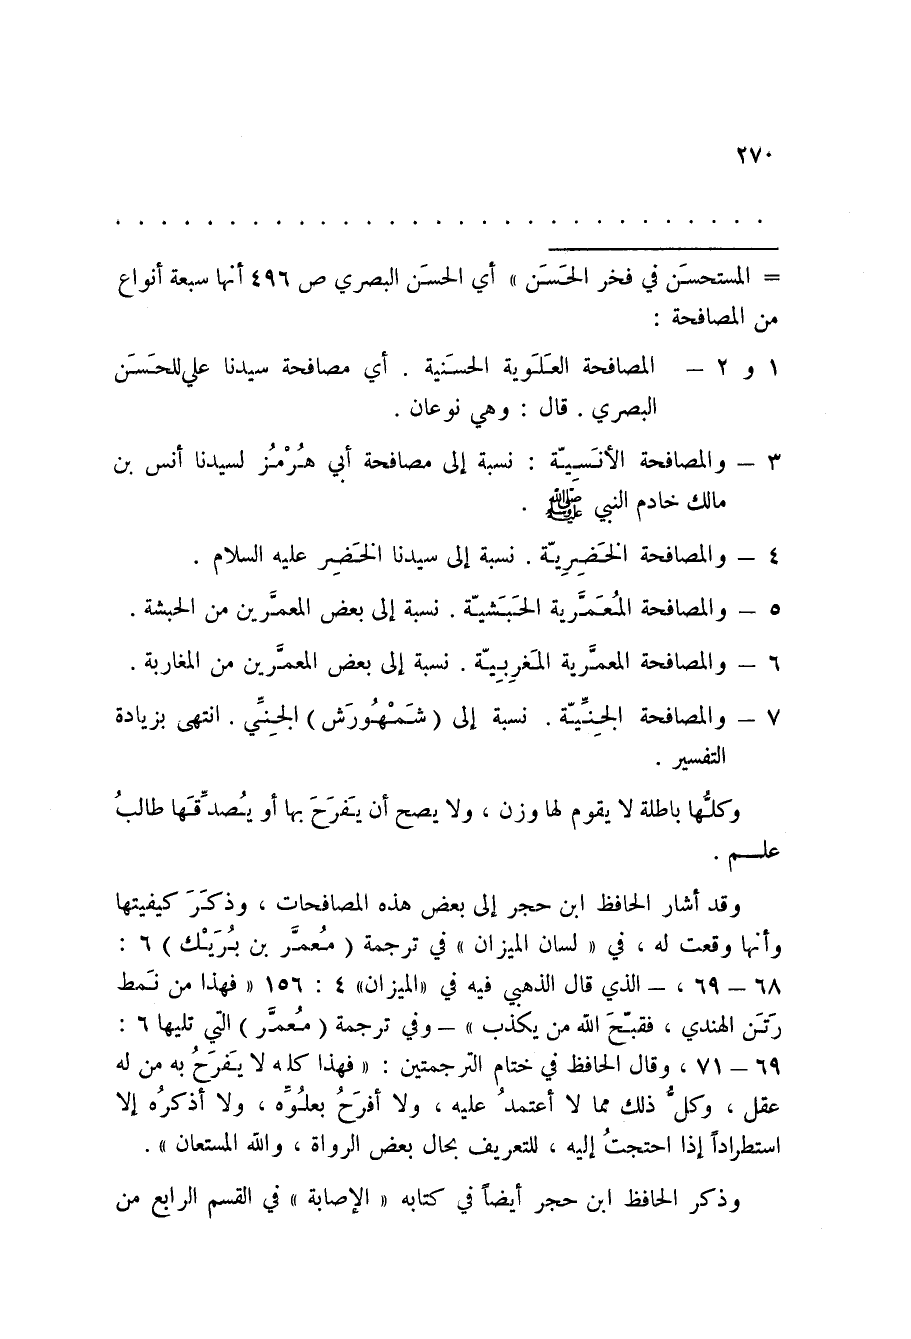 ٢٧٠
. . . . . . . . . . . . . . . . . . . . . . . . . . . . . .
= المستحسَن في فخر الحَسَن » أي الحسَن البصري ص ٤٩٦ أنها سبعة أنواع
من المصافحة :
١ و ٢ – المصافحة العَلَوية الحسَنية . أي مصافحة سيدنا علي للحَسَن
البصري . قال : وهي نوعان .
٣ – والمصافحة الأنَسِيّة : نسبة إلى مصافحة أبي هُرْمُز لسيدنا أنس بن
مالك خادم النبي ﷺ .
٤ – والمصافحة الخَضِرِيّة . نسبة إلى سيدنا الخَضِر عليه السلام .
٥ – والمصافحة المُعَمَّرية الحَبَشيّة . نسبة إلى بعض المعمَّرين من الحبشة .
٦ – والمصافحة المعمَّرية المَغرِبِيّة . نسبة إلى بعض المعمَّرين من المغاربة .
٧ – والمصافحة الجِنِّيّة . نسبة إلى ( شَمْهُورَش ) الجِنِّي . انتهى بزيادة
التفسير .
وكلُّها باطلة لا يقوم لها وزن ، ولا يصح أن يَفرَحَ بها أو يُصدِّقَها طالبُ
علــم .
وقد أشار الحافظ ابن حجر إلى بعض هذه المصافحات ، وذكَرَ كيفيتها
وأنها وقعت له ، في « لسان الميزان » في ترجمة ( مُعمَّر بن بُرَيْك ) ٦ :
٦٨ – ٦٩ ، – الذي قال الذهبي فيه في «الميزان» ٤ : ١٥٦ « فهذا من نَمط
رَتَن الهندي ، فقبّحَ الله من يكذب » – وفي ترجمة ( مُعمَّر ) التي تليها ٦ :
٦٩ – ٧١ ، وقال الحافظ في ختام الترجمتين : « فهذا كله لا يَفرَحُ به من له
عقل ، وكلُّ ذلك مما لا أعتمدُ عليه ، ولا أفرَحُ بعلُوِّه ، ولا أذكرُه إلا
استطراداً إذا احتجتُ إليه ، للتعريف بحال بعض الرواة ، والله المستعان » .
وذكر الحافظ ابن حجر أيضاً في كتابه « الإصابة » في القسم الرابع من